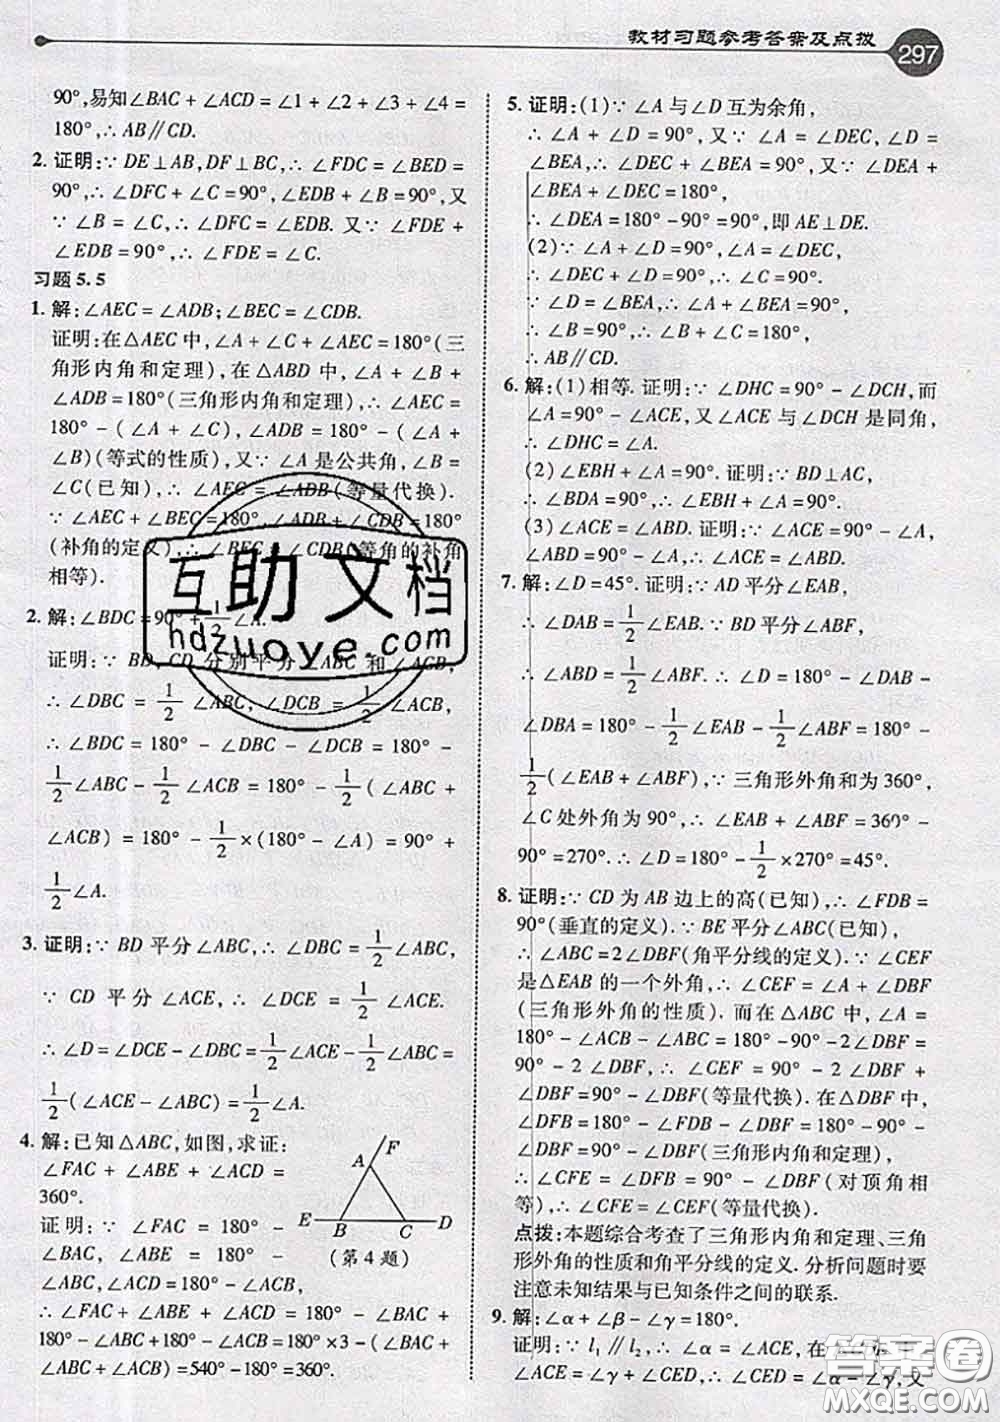 教材习题参考答案及点拨 297
90°,易知∠BAC + ∠ACD = ∠1 + ∠2 + ∠3 + ∠4 =
180°,∴ AB∥CD.
2. 证明:∵ DE⊥AB,DF⊥BC,∴ ∠FDC = ∠BED =
90°,∴ ∠DFC + ∠C = 90°,∠EDB + ∠B = 90°,又
∵ ∠B = ∠C,∴ ∠DFC = ∠EDB. 又∵ ∠FDE +
∠EDB = 90°,∴ ∠FDE + ∠DFC = 90°.
习题 5.5
1. 解:∠AEC = ∠ADB;∠BEC = ∠CDB.
证明:在△AEC 中,∠A + ∠C + ∠AEC = 180°(三
角形内角和定理),在△ABD 中,∠A + ∠B +
∠ADB = 180°(三角形内角和定理),∴ ∠AEC =
180° - (∠A + ∠C),∠ADB = 180° - (∠A +
∠B)(等式的性质),又∵ ∠A 是公共角,∠B =
∠C(已知),∴ ∠AEC = ∠ADB(等量代换).
∵ ∠AEC + ∠BEC = 180°,∠ADB + ∠CDB = 180°
(补角的定义),∴ ∠BEC = ∠CDB(等角的补角
相等).
2. 解:∠BDC = 90° + 1/2 ∠A.
证明:∵ BD,CD 分别平分∠ABC 和∠ACB,
∴ ∠DBC = 1/2 ∠ABC,∠DCB = 1/2 ∠ACB,
∴ ∠BDC = 180° - ∠DBC - ∠DCB = 180° -
1/2 ∠ABC - 1/2 ∠ACB = 180° - 1/2 (∠ABC +
∠ACB) = 180° - 1/2 ×(180° - ∠A) = 90° +
1/2 ∠A.
3. 证明:∵ BD 平分∠ABC,∴ ∠DBC = 1/2 ∠ABC,
∵ CD 平分∠ACE,∴ ∠DCE = 1/2 ∠ACE.
∴ ∠D = ∠DCE - ∠DBC = 1/2 ∠ACE - 1/2 ∠ABC =
1/2 (∠ACE - ∠ABC) = 1/2 ∠A.
4. 解:已知△ABC,如图,求证:
∠FAC + ∠ABE + ∠BCD =
360°.
证明:∵ ∠FAC = 180° -
∠BAC,∠ABE = 180° -
∠ABC,∠BCD = 180° - ∠ACB,
∴ ∠FAC + ∠ABE + ∠ACD = 180° - ∠BAC +
180° - ∠ABC + 180° - ∠ACB = 180° ×3 - (∠BAC +
∠ABC + ∠ACB) = 540° - 180° = 360°.
F
A
E B C D
(第 4 题)
5. 证明:(1)∵ ∠A 与∠D 互为余角,
∴ ∠A + ∠D = 90°,又∵ ∠A = ∠DEC,∠D =
∠BEA,∴ ∠DEC + ∠BEA = 90°,又∵ ∠DEA +
∠BEA + ∠DEC = 180°,
∴ ∠DEA = 180° - 90° = 90°,即 AE⊥DE.
(2)∵ ∠A + ∠D = 90°,∠A = ∠DEC,
∴ ∠DEC + ∠D = 90°,∴ ∠C = 90°.
∵ ∠D = ∠BEA,∴ ∠A + ∠BEA = 90°,
∴ ∠B = 90°,∴ ∠B + ∠C = 180°,
∴ AB∥CD.
6. 解:(1)相等. 证明:∵ ∠DHC = 90° - ∠DCH,而
∠A = 90° - ∠ACE,又∠ACE 与∠DCH 是同角,
∴ ∠DHC = ∠A.
(2)∠EBH + ∠A = 90°. 证明:∵ BD⊥AC,
∴ ∠BDA = 90°,∴ ∠EBH + ∠A = 90°.
(3)∠ACE = ∠ABD. 证明:∵ ∠ACE = 90° - ∠A,
∠ABD = 90° - ∠A,∴ ∠ACE = ∠ABD.
7. 解:∠D = 45°. 证明:∵ AD 平分∠EAB,
∴ ∠DAB = 1/2 ∠EAB. ∵ BD 平分∠ABF,
∴ ∠ABD = 1/2 ∠ABF. ∴ ∠D = 180° - ∠DAB -
∠DBA = 180° - 1/2 ∠EAB - 1/2 ∠ABF = 180° -
1/2 (∠EAB + ∠ABF),∵ 三角形外角和为 360°,
∠C 处外角为 90°,∴ ∠EAB + ∠ABF = 360° -
90° = 270°. ∴ ∠D = 180° - 1/2 ×270° = 45°.
8. 证明:∵ CD 为 AB 边上的高(已知),∴ ∠FDB =
90°(垂直的定义). ∵ BE 平分∠ABC(已知),
∴ ∠ABC = 2∠DBF(角平分线的定义). ∵ ∠CEF
是△EAB 的一个外角,∴ ∠CEF = ∠A + ∠DBF
(三角形外角的性质). 而在△ABC 中,∠A =
180° - ∠ACB - ∠ABC = 180° - 90° - 2∠DBF =
90° - 2 ∠DBF,∴ ∠CEF = 90° - 2 ∠DBF +
∠DBF = 90° - ∠DBF(等量代换). 在△DBF 中,
∠DFB = 180° - ∠FDB - ∠DBF = 180° - 90° -
∠DBF = 90° - ∠DBF,∴ ∠CEF = ∠DFB. 又
∵ ∠CFE = ∠DFB = 90° - ∠DBF(对顶角相
等),∴ ∠CFE = ∠CEF(等量代换).
点拨:本题综合考查了三角形内角和定理、三角
形外角的性质和角平分线的定义. 分析问题时要
注意未知结果与已知条件之间的联系.
9. 解:∠α + ∠β - ∠γ = 180°.
证明:∵ l₁∥l₂,∴ ∠α = ∠ACE,在
∠ACE = ∠CED + ∠γ,∴ ∠CED = ∠α - ∠γ,又
互助文档
hdzuoye.com
答案圈
MXQE.COM